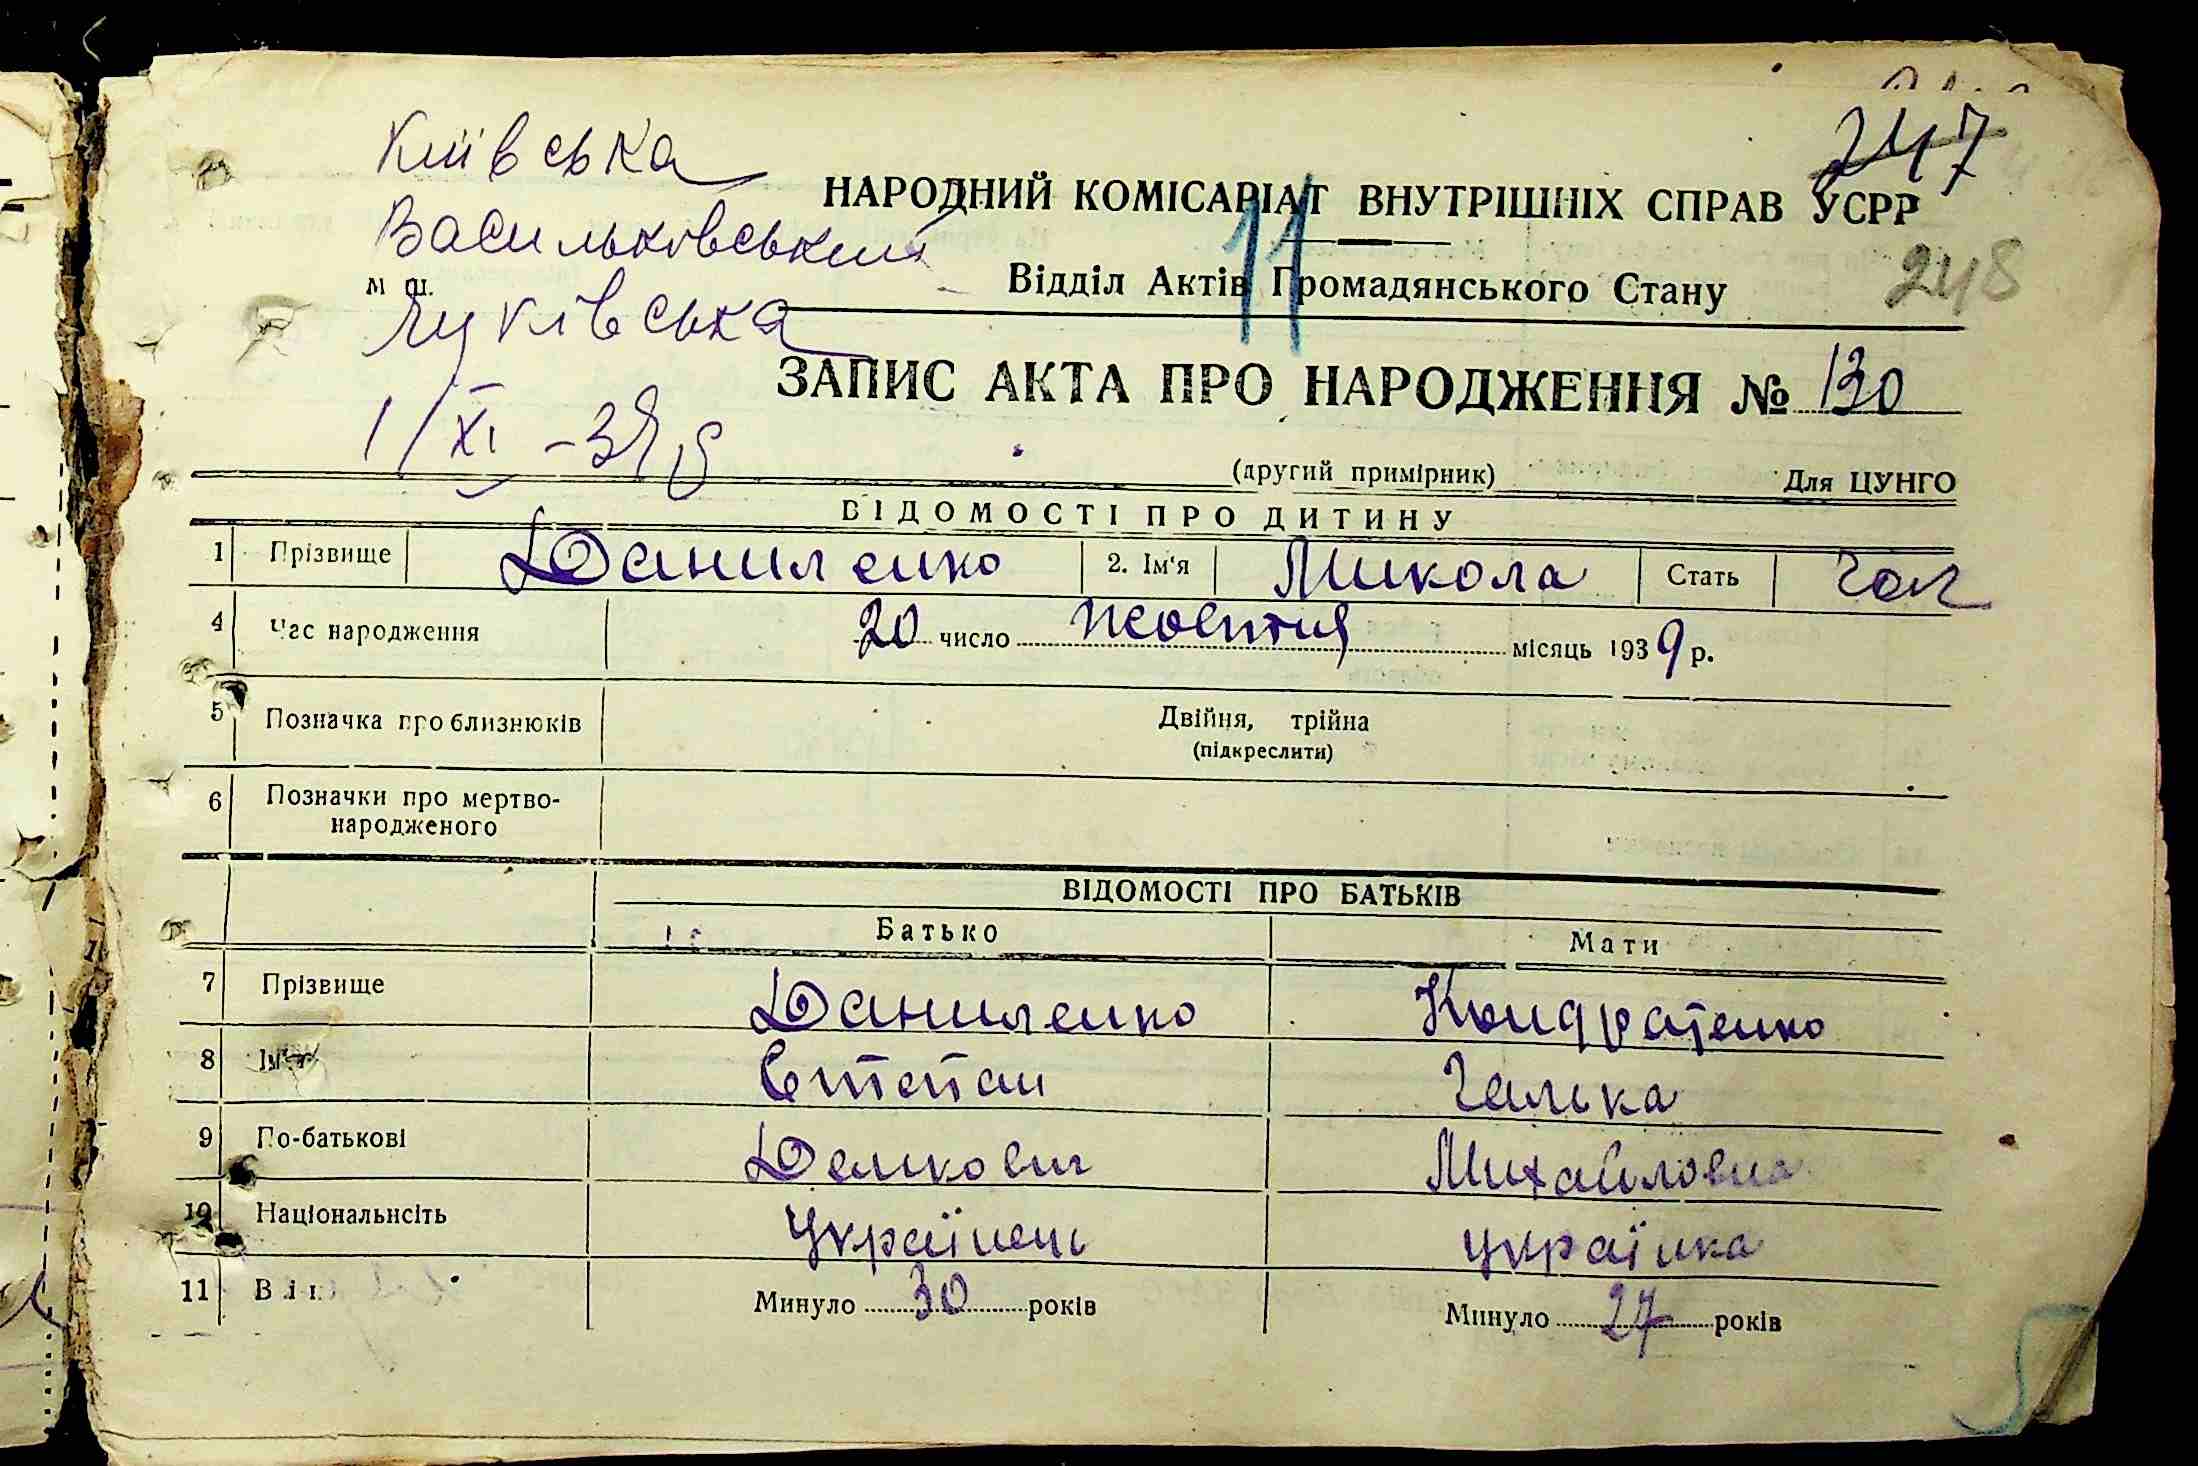 Київська
247
НАРОДНИЙ КОМІСАРІАТ ВНУТРІШНІХ СПРАВ УСРР
Васильковський
11
Відділ Актів Громадянського Стану
248
м
Луківська
ЗАПИС АКТА ПРО НАРОДЖЕННЯ № 130
1/XI
(другий примірник) Для ЦУНГО
ВІДОМОСТІ ПРО ДИТИНУ
1 Прізвище Даниленко 2. Ім'я Микола Стать чол
4 Час народження 20 число жовтня місяць 1939 р.
5 Позначка про близнюків Двійня, трійна
(підкреслити)
6 Позначки про мертво-
народженого
ВІДОМОСТІ ПРО БАТЬКІВ
Батько Мати
7 Прізвище Даниленко Кондратенко
8 Ім'я Степан Галька
9 По-батькові Демкович Михайловна
10 Національнсіть Українець українка
11 Вік Минуло 30 років Минуло 27 років